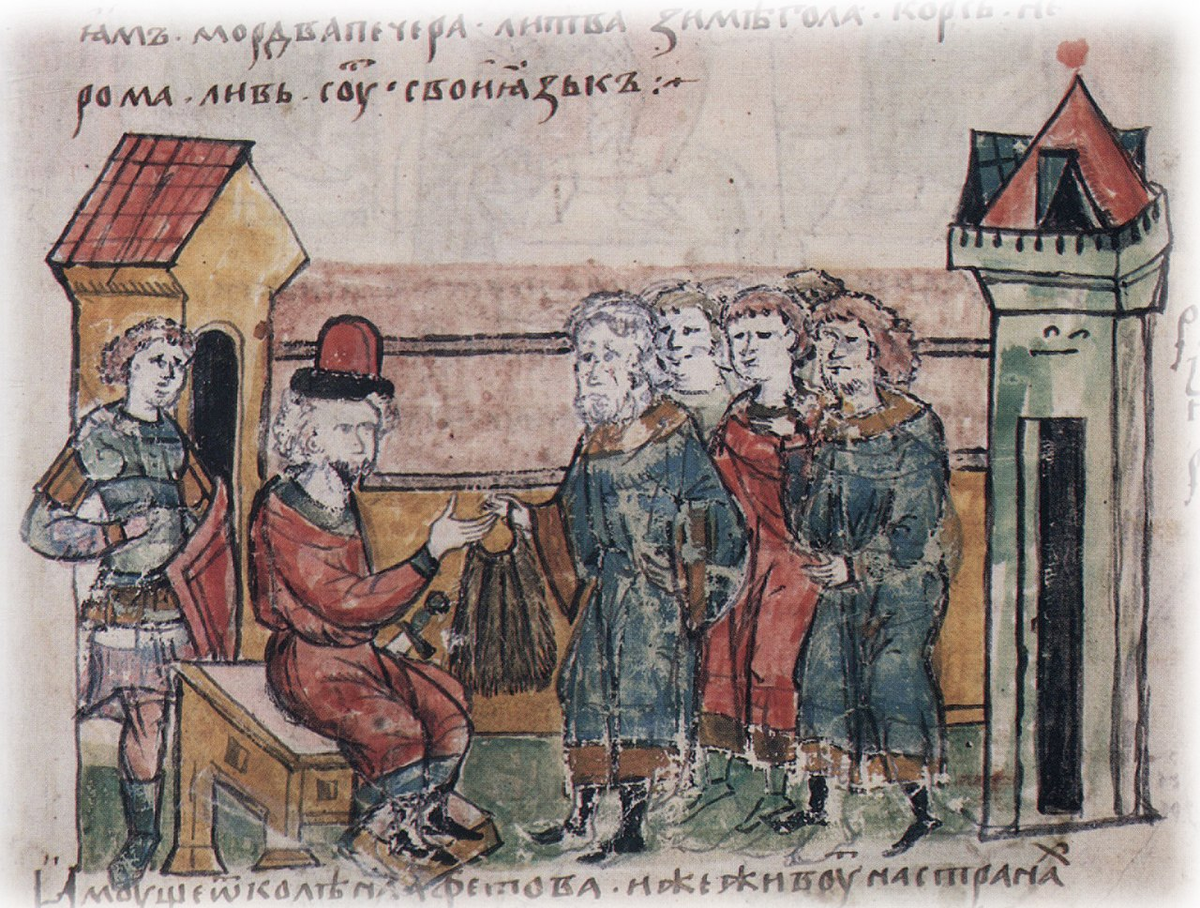 ꙗмъ · мордвапечера · литва зимѣгола · корсь · не
рома · ливь · соуⷮ · свои ꙗзыкъ :~
имоуще ѿ колѣна афетова · иже живоуⷮ на странаⷯ